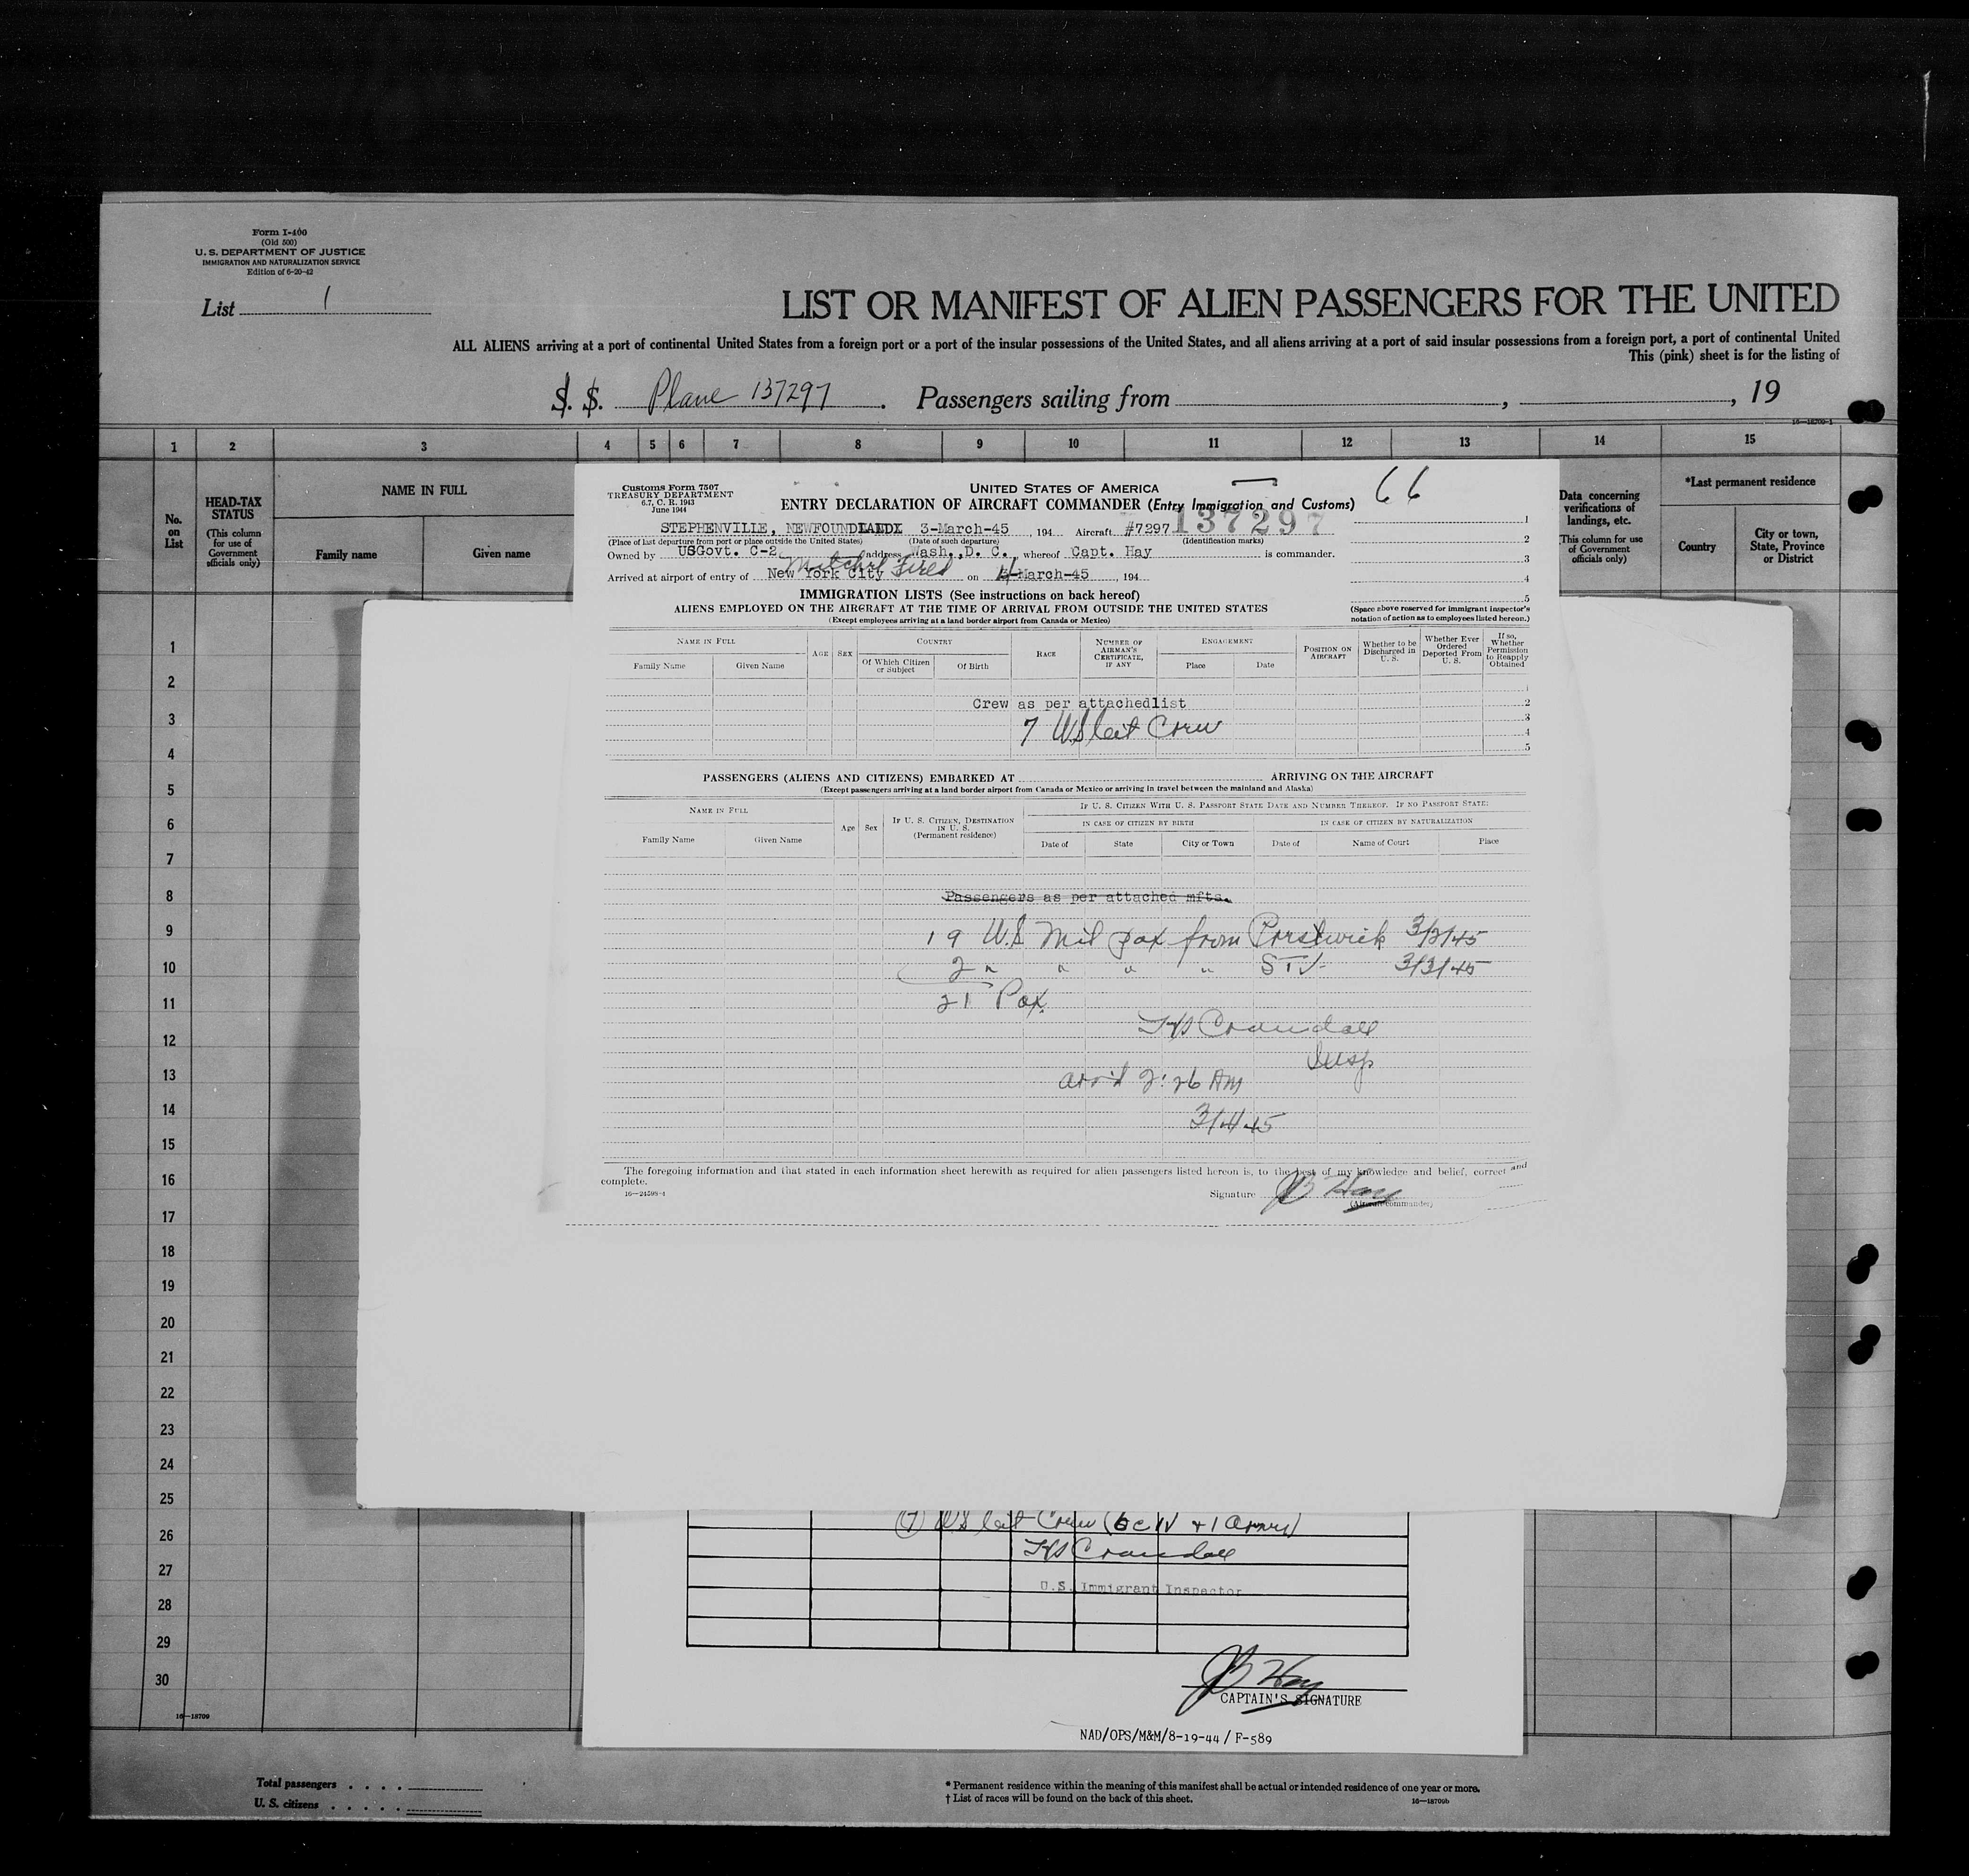 Form I-400
(Old 500)
U. S. DEPARTMENT OF JUSTICE
IMMIGRATION AND NATURALIZATION SERVICE
Edition of 6-20-42
List 1
LIST OR MANIFEST OF ALIEN PASSENGERS FOR THE UNITED
ALL ALIENS arriving at a port of continental United States from a foreign port or a port of the insular possessions of the United States, and all aliens arriving at a port of said insular possessions from a foreign port, a port of continental United
This (pink) sheet is for the listing of
S. S. Plane 137297. Passengers sailing from , , 19
16—18709-1
1 2 3 4 5 6 7 8 9 10 11 12 13 14 15
No. on List
HEAD-TAX STATUS
(This column for use of Government officials only)
NAME IN FULL
Family name Given name
Data concerning verifications of landings, etc.
(This column for use of Government officials only)
*Last permanent residence
Country
City or town, State, Province or District
Customs Form 7507
TREASURY DEPARTMENT
6.7, C. R. 1943
June 1944
UNITED STATES OF AMERICA
ENTRY DECLARATION OF AIRCRAFT COMMANDER (Entry Immigration and Customs)
66
STEPHENVILLE, NEWFOUNDLAND 3-March-45, 194 Aircraft #7297 137297
(Place of last departure from port or place outside the United States) (Date of such departure) (Identification marks)
Owned by USGovt. C-2 address Wash., D. C., whereof Capt. Hay is commander.
Mitchel Field
Arrived at airport of entry of New York City on 4 March-45, 194
IMMIGRATION LISTS (See instructions on back hereof)
ALIENS EMPLOYED ON THE AIRCRAFT AT THE TIME OF ARRIVAL FROM OUTSIDE THE UNITED STATES
(Except employees arriving at a land border airport from Canada or Mexico)
1
2
3
4
5
(Space above reserved for immigrant inspector's notation of action as to employees listed hereon.)
NAME IN FULL
Family Name Given Name
AGE SEX
COUNTRY
Of Which Citizen or Subject Of Birth
RACE
NUMBER OF AIRMAN'S CERTIFICATE, IF ANY
ENGAGEMENT
Place Date
POSITION ON AIRCRAFT
Whether to be Discharged in U. S.
Whether Ever Ordered Deported From U. S.
If so, Whether Permission to Reapply Obtained
1
Crew as per attachedlist 2
3
7 US cit Crew 4
5
PASSENGERS (ALIENS AND CITIZENS) EMBARKED AT ARRIVING ON THE AIRCRAFT
(Except passengers arriving at a land border airport from Canada or Mexico or arriving in travel between the mainland and Alaska)
NAME IN FULL
Family Name Given Name
Age Sex
IF U. S. CITIZEN, DESTINATION IN U. S.
(Permanent residence)
IF U. S. CITIZEN WITH U. S. PASSPORT STATE DATE AND NUMBER THEREOF. IF NO PASSPORT STATE:
IN CASE OF CITIZEN BY BIRTH IN CASE OF CITIZEN BY NATURALIZATION
Date of State City or Town Date of Name of Court Place
Passengers as per attached mfts.
19 U.S Mil pax from Prestwick 3/3/45
2 " " " " STV 3/3/45
21 Pax.
Crandall
Insp
arr'd 2:26 AM
3/4/45
The foregoing information and that stated in each information sheet herewith as required for alien passengers listed hereon is, to the best of my knowledge and belief, correct and
complete.
16—24598-1
Signature JB Hay
(Aircraft commander)
1
2
3
4
5
6
7
8
9
10
11
12
13
14
15
16
17
18
19
20
21
22
23
24
25
26
27
28
29
30
(7) US cit Crew (6 civ + 1 Army)
Crandall
U.S. Immigrant Inspector
JB Hay
CAPTAIN'S SIGNATURE
NAD/OPS/M&M/8-19-44 / F-589
16—18709
Total passengers . . . .
U. S. citizens . . . . .
* Permanent residence within the meaning of this manifest shall be actual or intended residence of one year or more.
† List of races will be found on the back of this sheet.
16—18709b